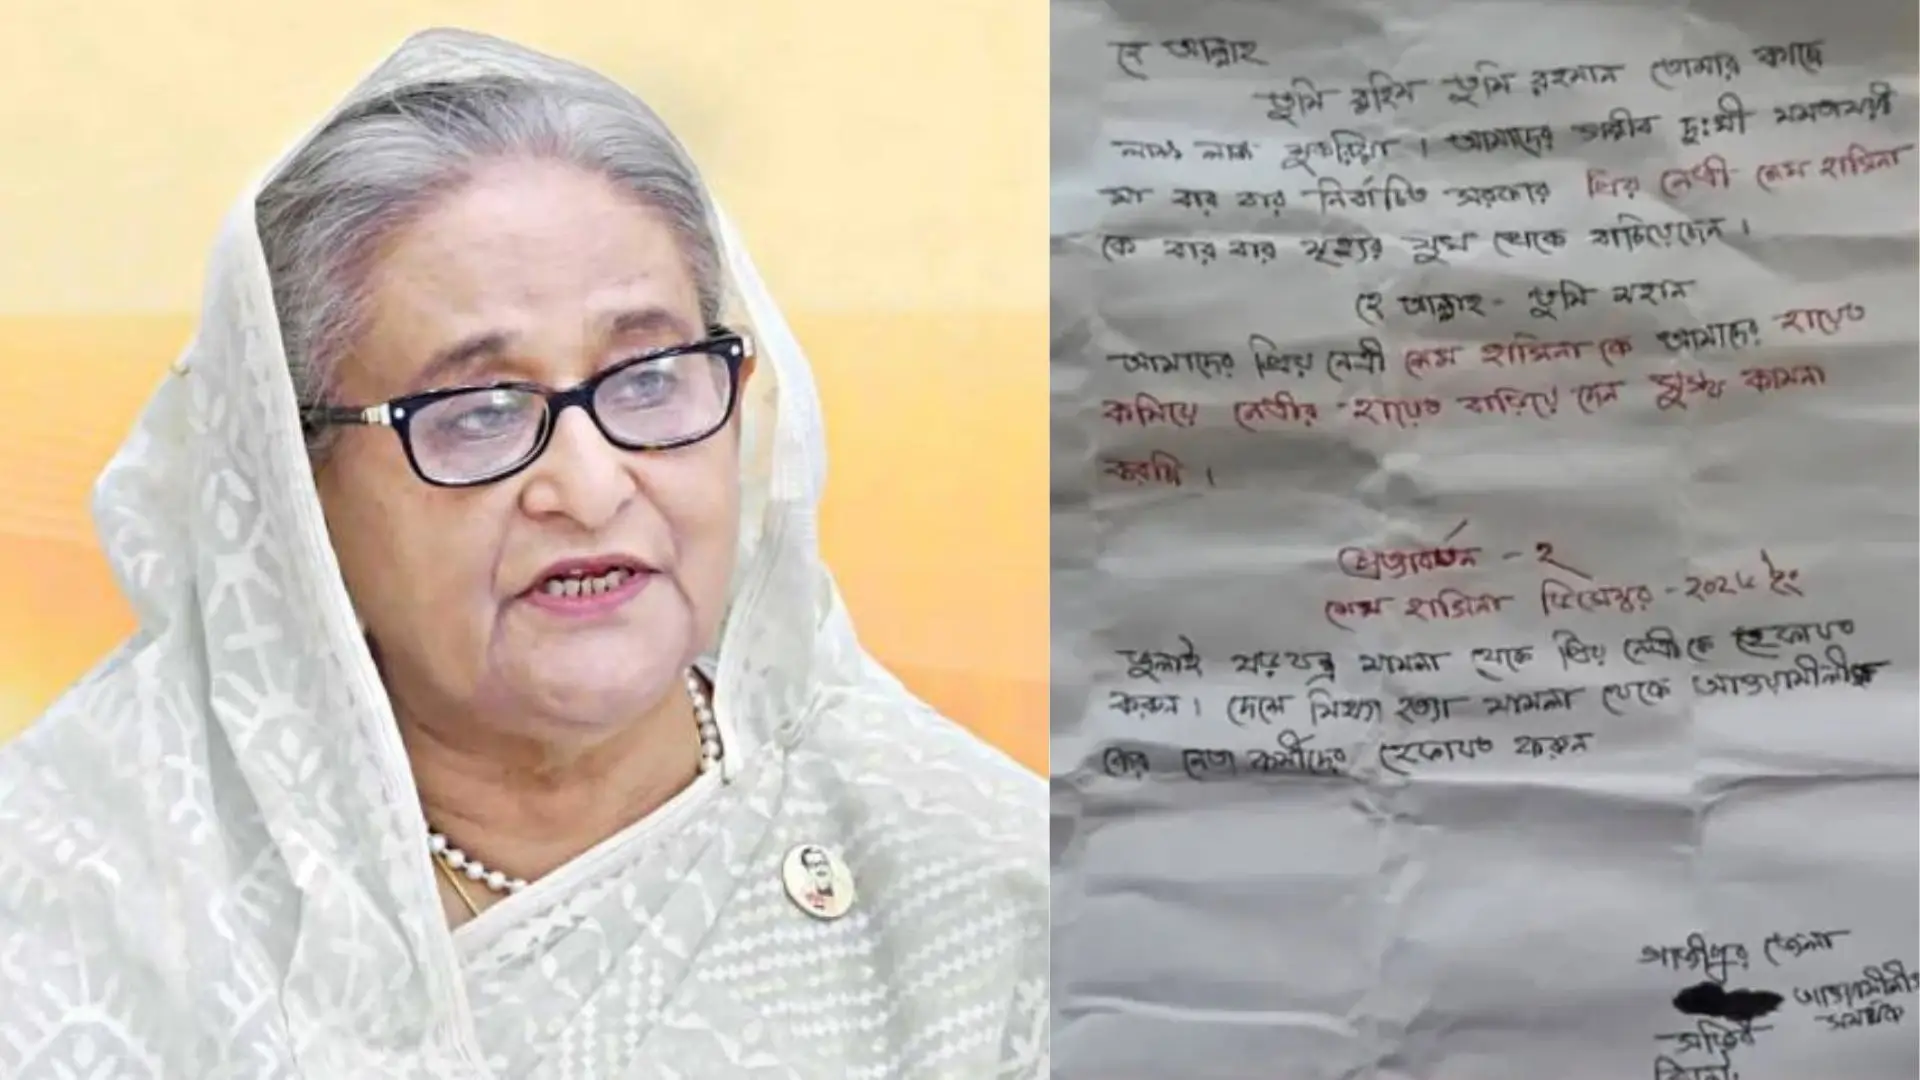 হে আল্লাহ
তুমি রহিম তুমি রহমান তোমার কাছে
লাখ লাখ শুকরিয়া । আমাদের গরীব দুঃখী মমতাময়ী
মা বার বার নির্বাচিত সরকার প্রিয় নেত্রী শেখ হাসিনা
কে বার বার মৃত্যুর মুখ থেকে বাচিয়েছেন ।
হে আল্লাহ - তুমি মহান
আমাদের প্রিয় নেত্রী শেখ হাসিনা কে আমাদের হায়েত
কমিয়ে নেত্রীর হায়েত বাড়িয়ে দেন সুস্থ্য কামনা
করছি ।
প্রত্যাবর্তন - ২
শেখ হাসিনা ডিসেম্বর - ২০২৫ ইং
জুলাই ষড়যন্ত্র মামলা থেকে প্রিয় নেত্রীকে হেফাযত
করুন । দেশে মিথ্যা হত্যা মামলা থেকে আওয়ামীলীগ
নেতা কর্মীদের হেফাযত করুন
গাজীপুর জেলা
আওয়ামীলীগ
সমর্থক